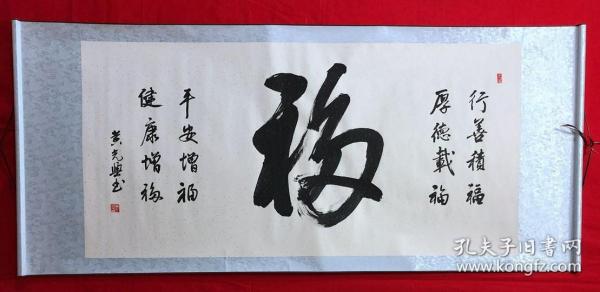 行善積福
厚德載福
福
平安增福
健康增福
黄光興书
孔夫子旧書网
www.kongfz.com